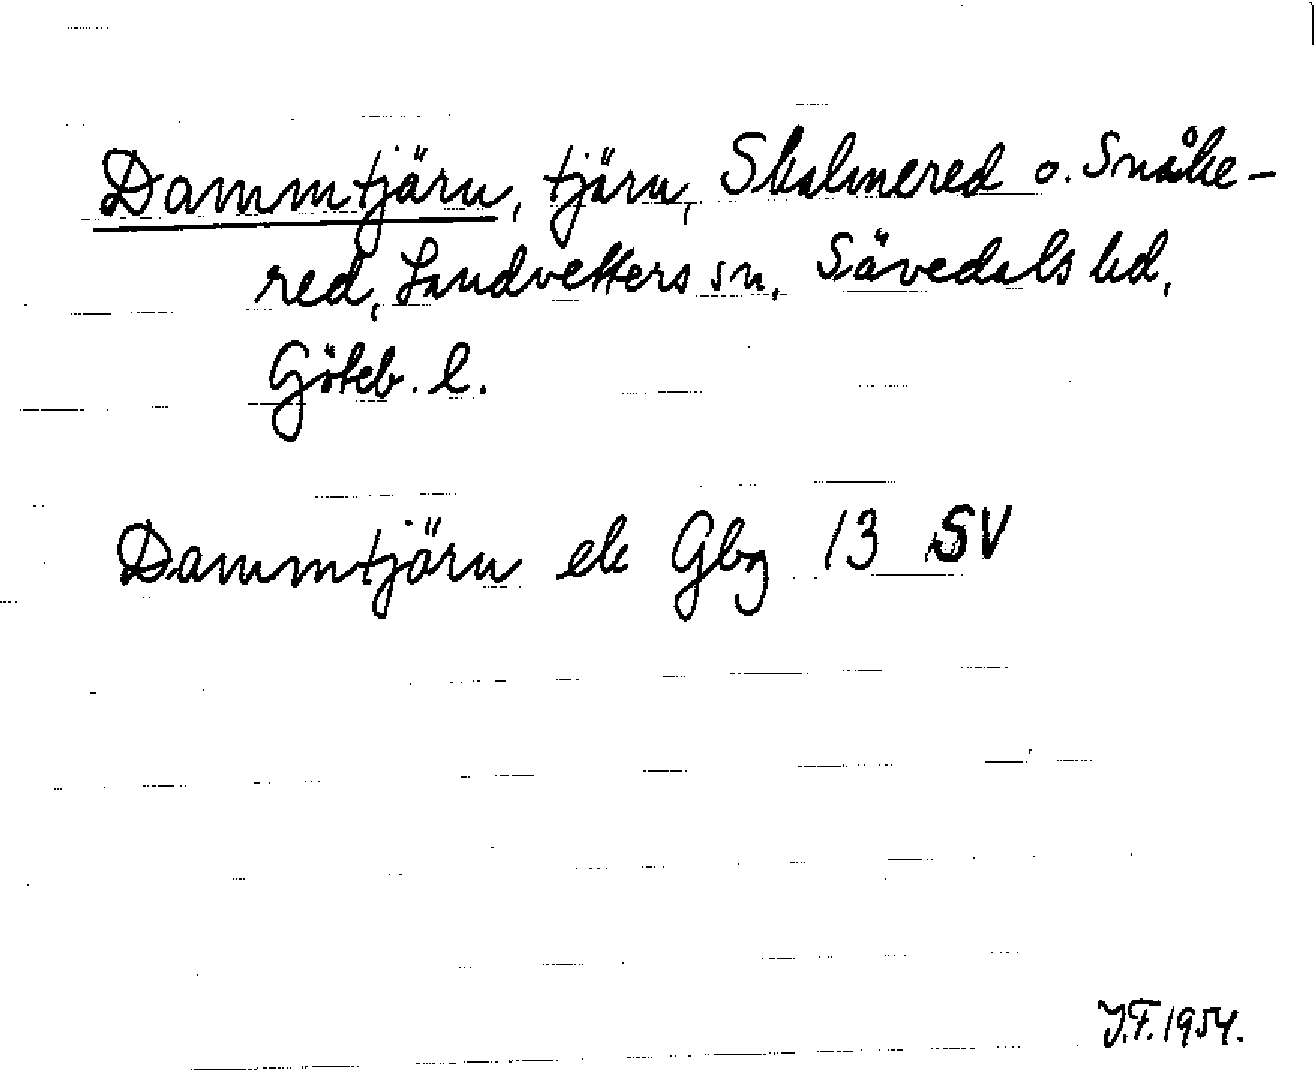 Dammtjärn, tjärn, Skalmered o. Snåke-
red, Landvetters sn, Sävedals hd,
Göteb. l.
Dammtjärn ek Gbg 13 SV
J.F. 1954.